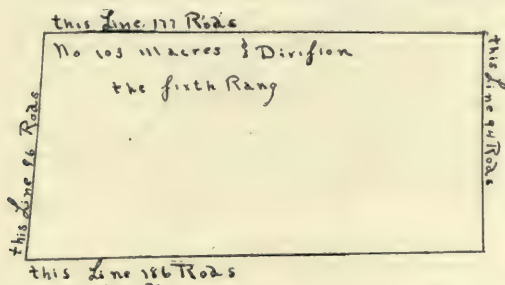 this Line 177 Rods
No 103 111 acres 3 Divifion
the fixth Rang
this Line 96 Rods
this Line 94 Rods
this Line 186 Rods